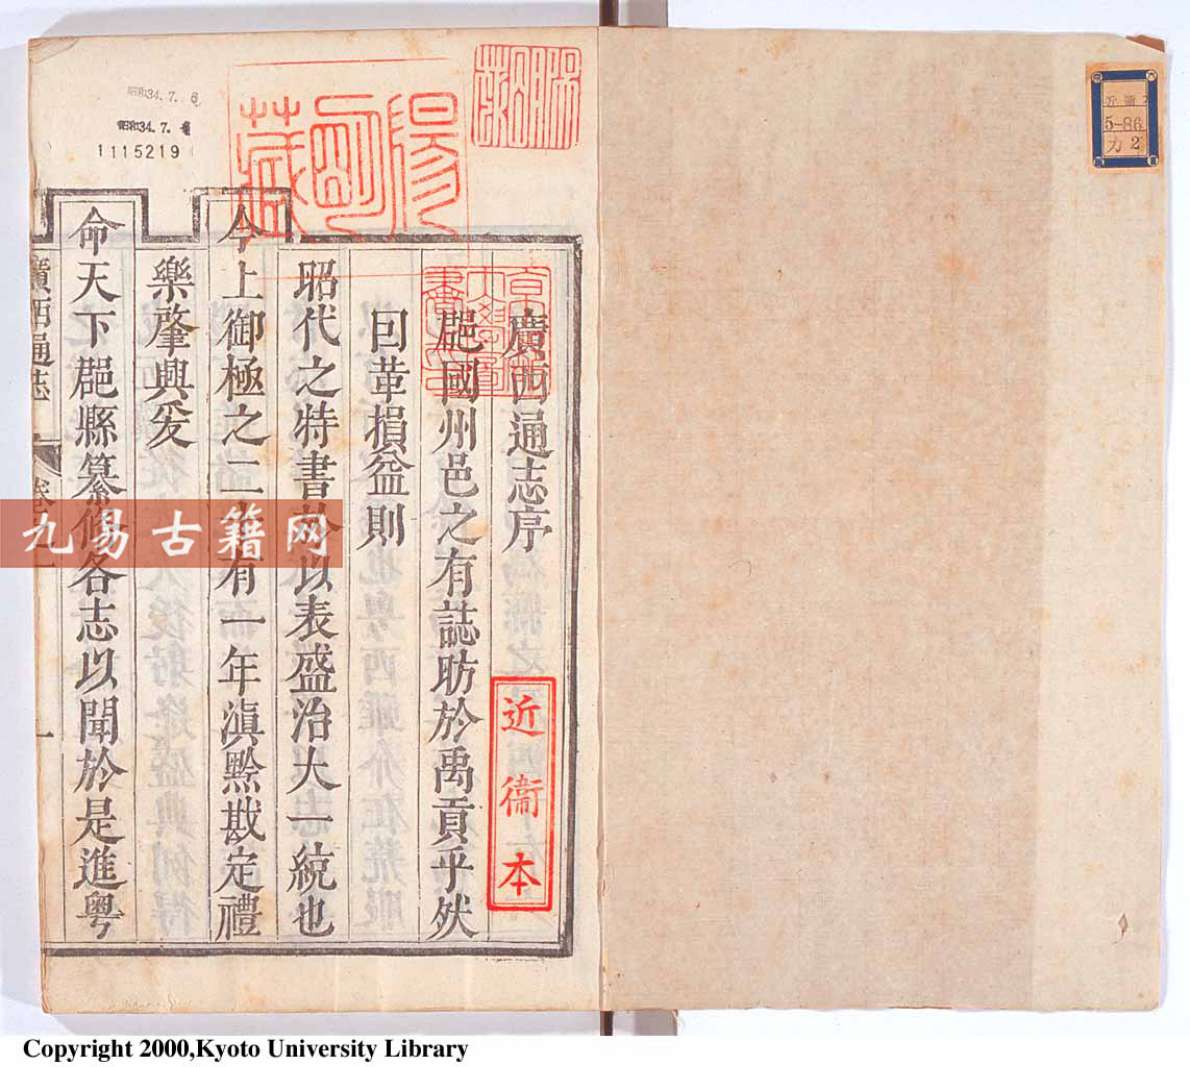 廣西通志序
郡國州邑之有誌昉於禹貢乎然
囙革損益則
昭代之特書於以表盛治大一統也
今上御極之二十有一年滇黔戡定禮
樂肇興爰
命天下郡縣纂修各志以聞於是進粵
廣西通志
一
陽明藏
近衞本
昭和34.7.6
昭和34.7.
1115219
5-86
力 2
九易古籍网
Copyright 2000,Kyoto University Library